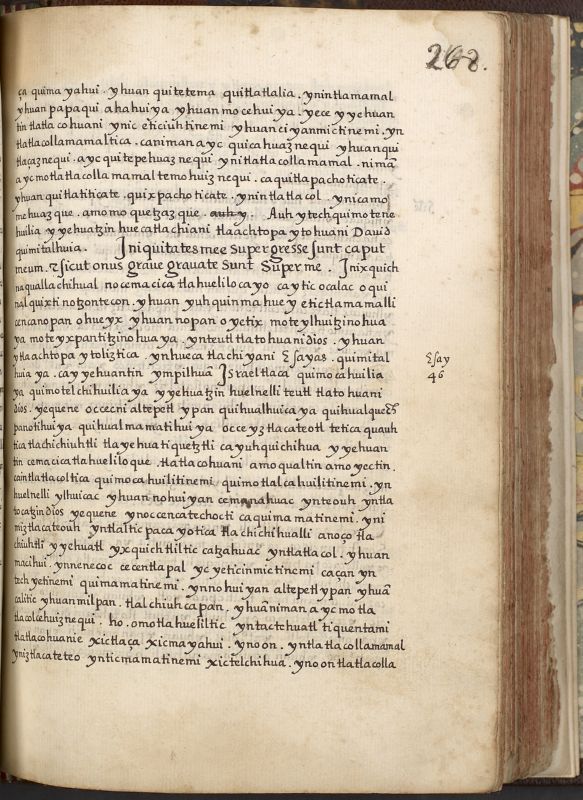 268.
ça quimayahui . yhuan quitetema quitlatlalia . ynintlamamal
yhuan papaqui ahahuiya yhuan mocehuiya . yece yyehuan
tin tlatlacohuani ynic eticiuhtinemi yhuan ciyanmictinemi . yn
tlatlacollamamaltica . caniman ayc quicahuaznequi yhuanqui
tlaçaznequi . ayc quitepehuaznequi ynitlatlacollamamal . nimã
aycmo tlatlacollamamal temohuiznequi . ca quitlapachoticate .
yhuan quitlatiticate . quixpachoticate . ynintlatlacol . ynicamo
mehuazque . amo moquetzazque . auh y . Auh ytechquimotene
huilia yyehuatzin huecatlachiani tlaachtopaytohuani Dauid
quimitalhuia . Iniquitates mee supergresse sunt caput
meum . & sicut onus graue grauate sunt super me . Inixquich
naqualla chihual nocemacica tlahuelilocayo caytic ocalac oqui
nalquixti notzontecon . yhuan yuhquinmahuey etictlamamalli
cencanopan ohueyx yhuan nopan oyetix moteylhuitzinohua
ya moteyxpantitzinohuaya . ynteutl tlatohuani dios . yhuan
ytlaachtopaytoliztica . ynhuecatlachiyani Esayas . quimital
huiaya . cayyehuantin ynipilhuã Israel tlaca quimocahuilia
ya quimotelchihuilia ya yyehuatzin huelnelli teutl tlatohuani
dios . yequene occecni altepetl ypan quihualhuicaya quihualquetz
panotihuiya quihualmamatihuiya occeyz tlacateotl tetica quauh
tica tlachichiuhtli tlayehuatiquetztli cayuhquichihua yyehuan
tin cemacicatlahueliloque . tlatlacohuani amo qualtin amo yectin .
cain tlatlacoltica quimocahuilitinemi quimotlalcahuilitinemi . yn
huelnelli ylhuicac yhuan nohuiyan cemanahuac ynteouh yntla
tocatzin dios yequene ynoccencatechocti caquimamatinemi . yni
miztlacateouh yntlalticpacayotica tlachichihualli anoço tla
chiuhtli yyehuatl yxquich tliltic catzahuac yntlatlacol . yhuan
macihui . ynnenecoc cecentlapal yc yeticinmictinemi caçan yn
techyetinemi quimamatinemi . ynnohuiyan altepetl ypan yhuã
calitic yhuan milpan . tlalchiuhcapan , yhuã niman ayc motla
tlacolcehuiznequi . ho . omotlahueliltic yntactehuatl tiquentami
tlatlacohuanie xictlaça xicmayahui . ynoon . yntlatlacollamamal
yniztlacateteo ynticmamatinemi xictelchihua . ynoon tlatlacolla
Esay
46